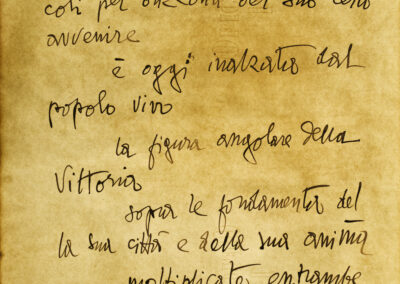 coli per onore del suo certo
avvenire
è oggi inalzata dal
popolo vivo
la figura angolare della
Vittoria
sopra le fondamenta del
la sua città e della sua anima
moltiplicate entrambe